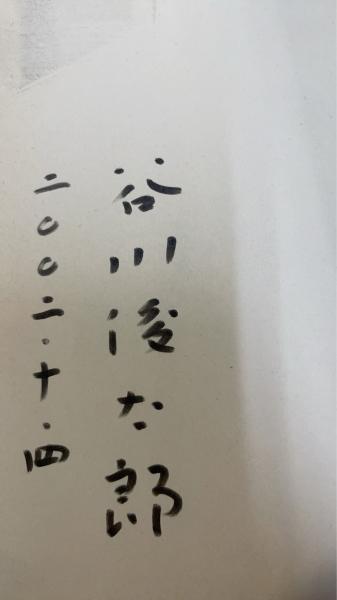 谷川俊太郎
二〇〇二・十・四